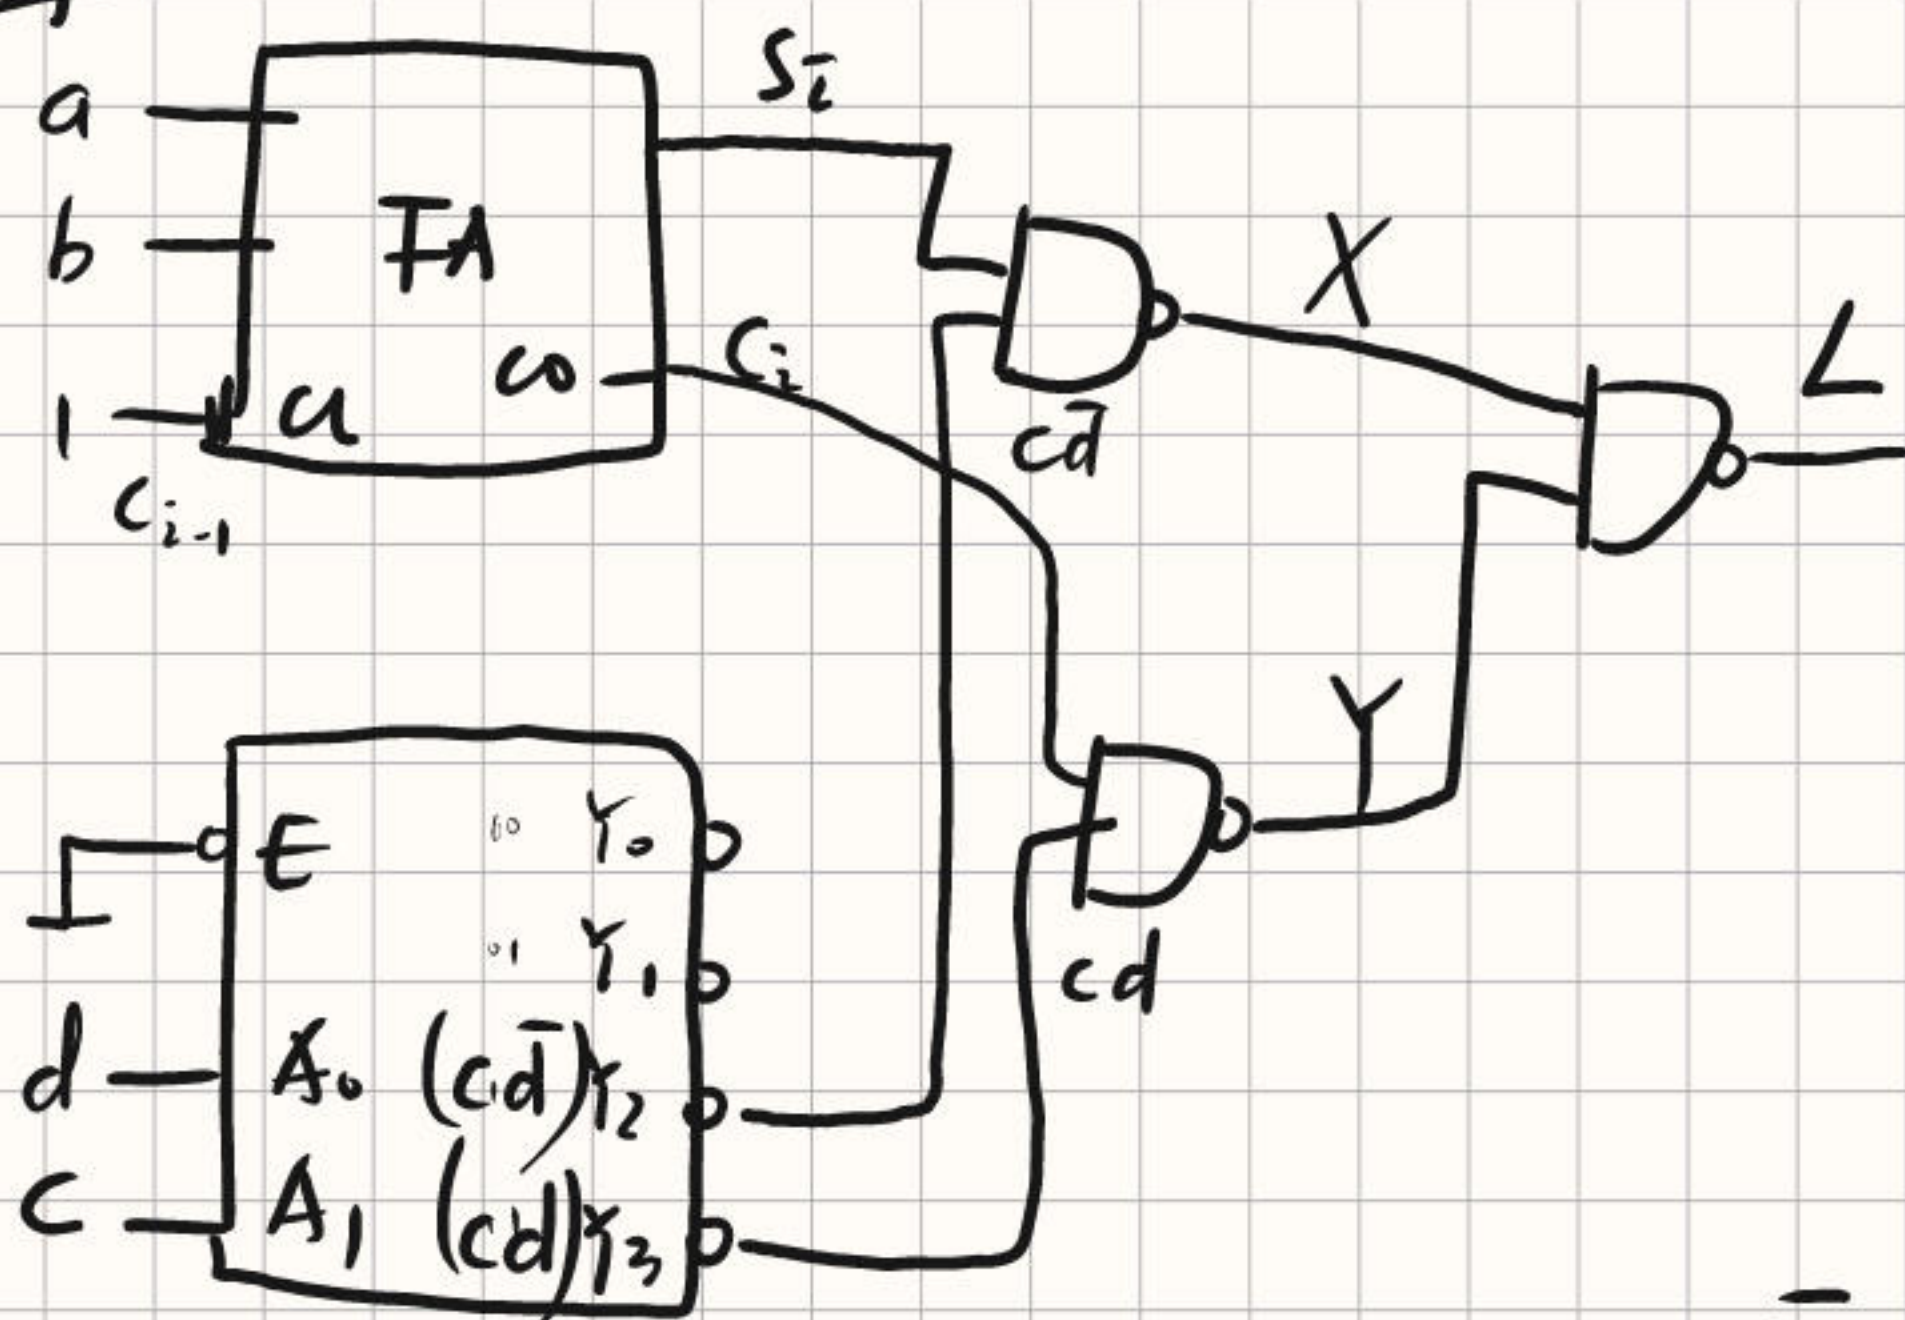 a
b
1
C_{i-1}
FA
CI
CO
S_i
C_i
X
L
cd̄
E
d
A₀
C
A₁
00 Y₀
01 Y₁
(cd̄) Y₂
(cd) Y₃
Y
cd